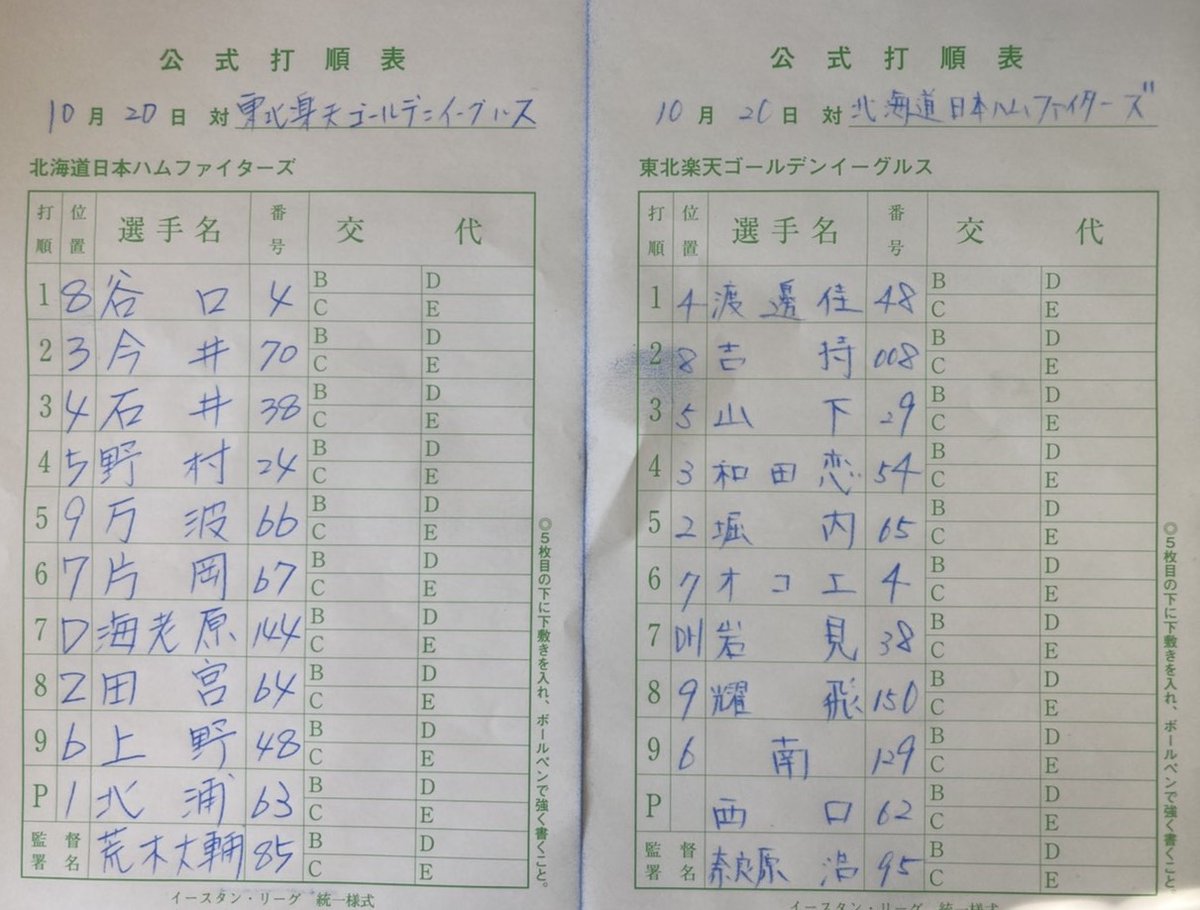 公式打順表
10月20日 対 東北楽天ゴールデンイーグルス
北海道日本ハムファイターズ
打順 位置 選手名 番号 交代
1 8 谷口 4 B D C E
2 3 今井 70 B D C E
3 4 石井 38 B D C E
4 5 野村 24 B D C E
5 9 万波 66 B D C E
6 7 片岡 67 B D C E
7 D 海老原 144 B D C E
8 2 田宮 64 B D C E
9 6 上野 48 B D C E
P 1 北浦 63 B D C E
監督署名 荒木大輔 85 B D C E
◎5枚目の下に下敷きを入れ、ボールペンで強く書くこと。
イースタン・リーグ 統一様式
公式打順表
10月20日 対 北海道日本ハムファイターズ
東北楽天ゴールデンイーグルス
打順 位置 選手名 番号 交代
1 4 渡邊佳 48 B D C E
2 8 吉持 008 B D C E
3 5 山下 29 B D C E
4 3 和田恋 54 B D C E
5 2 堀内 65 B D C E
6 7 オコエ 4 B D C E
7 DH 岩見 38 B D C E
8 9 耀飛 150 B D C E
9 6 南 129 B D C E
P 西口 62 B D C E
監督署名 奈良原浩 95 B D C E
◎5枚目の下に下敷きを入れ、ボールペンで強く書くこと。
イースタン・リーグ 統一様式